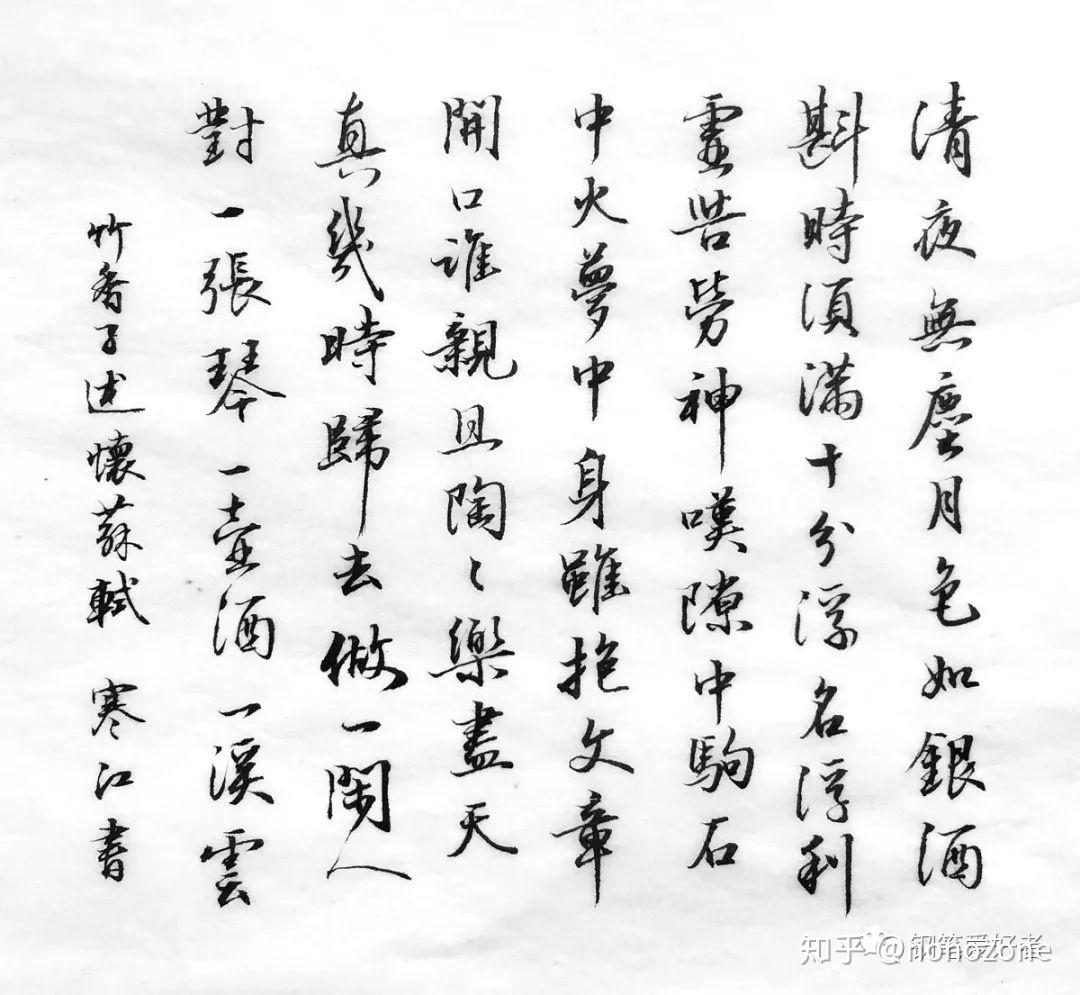 清夜無塵月色如銀酒
斟時須滿十分浮名浮利
虛苦勞神嘆隙中駒石
中火夢中身雖抱文章
開口誰親且陶々樂盡天
真幾時歸去做一閑人
對一張琴一壺酒一溪雲
行香子述懷蘇軾 寒江書
知乎 @nonozone
钢笔爱好者